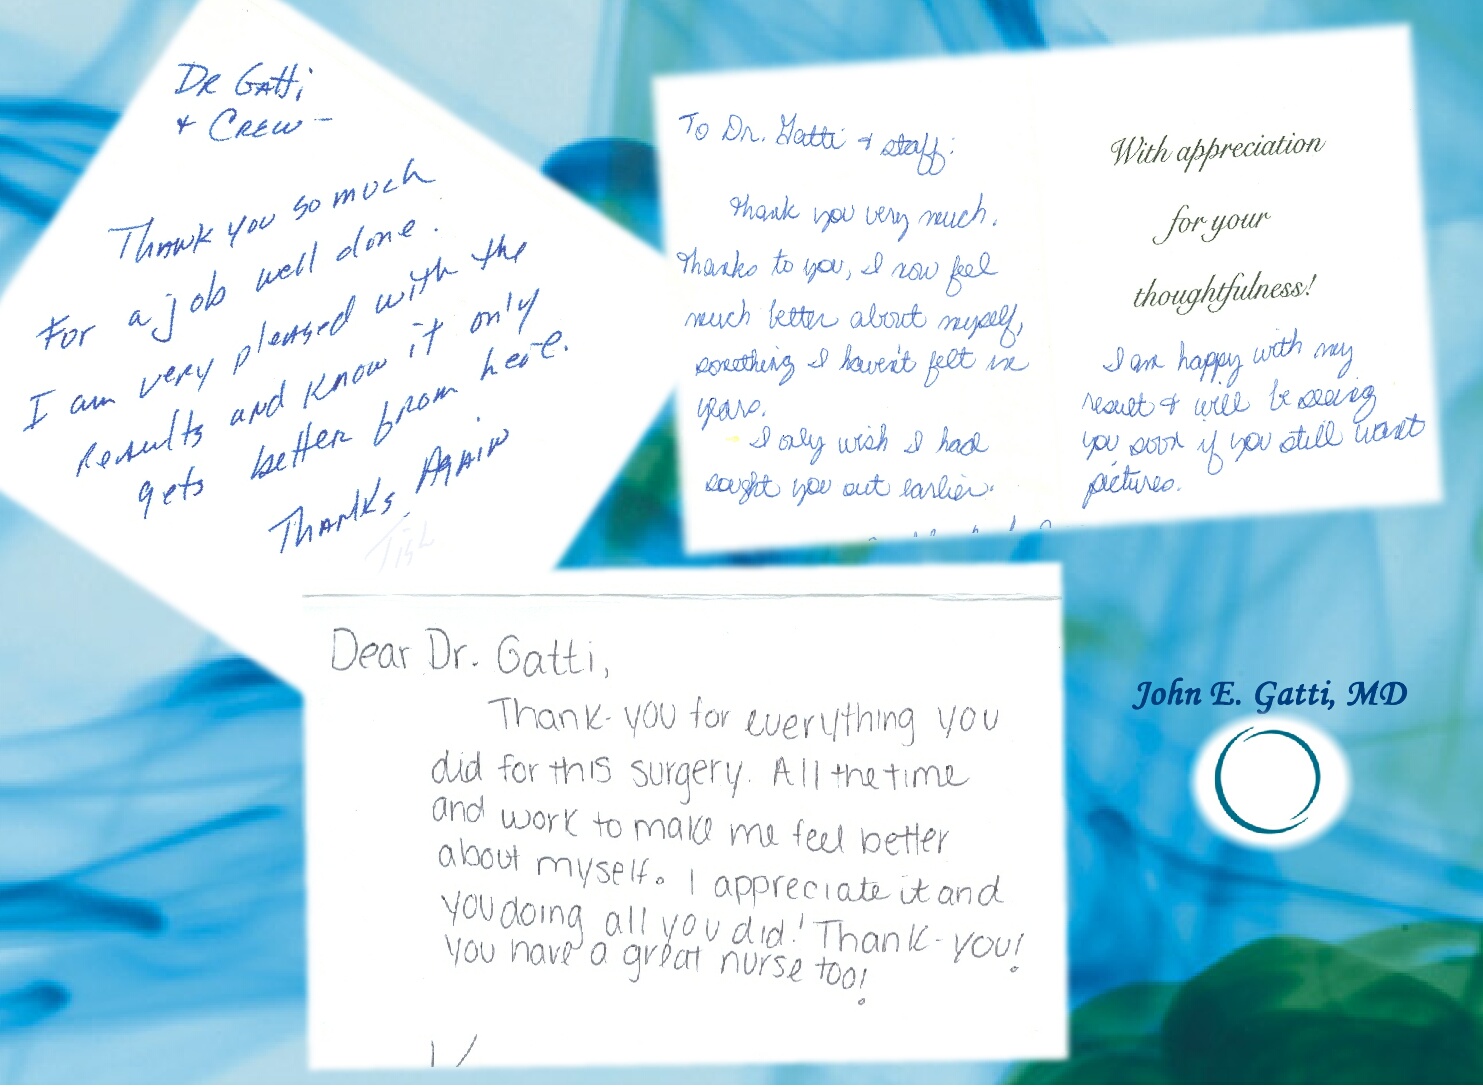 Dr Gatti
+ Crew -
Thank you so much
For a job well done.
I am very pleased with the
results and know it only
gets better from here.
Thanks Again
Tish
To Dr. Gatti & staff:
Thank you very much.
Thanks to you, I now feel
much better about myself,
something I haven't felt in
years.
I only wish I had
sought you out earlier.
With appreciation
for your
thoughtfulness!
I am happy with my
result & will be seeing
you soon if you still want
pictures.
Dear Dr. Gatti,
Thank-you for everything you
did for this surgery. All the time
and work to make me feel better
about myself. I appreciate it and
you doing all you did! Thank-you!
You have a great nurse too!
John E. Gatti, MD